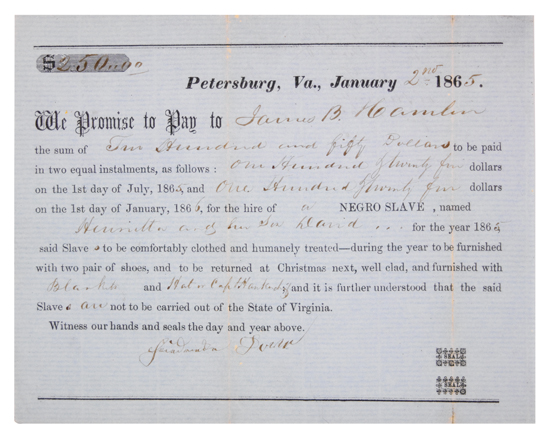 $250.00
Petersburg, Va., January 2nd 1865.
We Promise to Pay to James B. Hamlin
the sum of Two Hundred and fifty Dollars to be paid
in two equal instalments, as follows: One Hundred & twenty five dollars
on the 1st day of July, 1865, and One Hundred & twenty five dollars
on the 1st day of January, 1866, for the hire of a NEGRO SLAVE, named
Henrietta and her Son David for the year 1865
said Slave s to be comfortably clothed and humanely treated—during the year to be furnished
with two pair of shoes, and to be returned at Christmas next, well clad, and furnished with
Blanket and Hat or Cap and it is further understood that the said
Slave s are not to be carried out of the State of Virginia.
Witness our hands and seals the day and year above.
SEAL
SEAL